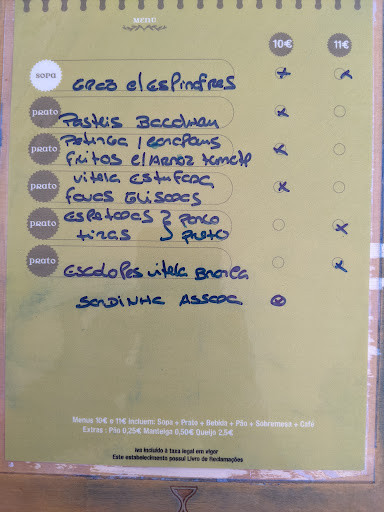 MENU
10€ 11€
sopa Grão c/espinafres
prato Pasteis Bacalhau
prato Petinga / carapaus
fritos c/Arroz tomate
prato vitela Estufada
favas Guisadas
prato espetadas } porco
tiras } preto
prato escalopes vitela
Sardinha Assada
Menus 10€ e 11€ incluem: Sopa + Prato + Bebida + Pão + Sobremesa + Café
Extras : Pão 0,25€ Manteiga 0,50€ Queijo 2,5€
iva incluído à taxa legal em vigor
Este estabelecimento possui Livro de Reclamações